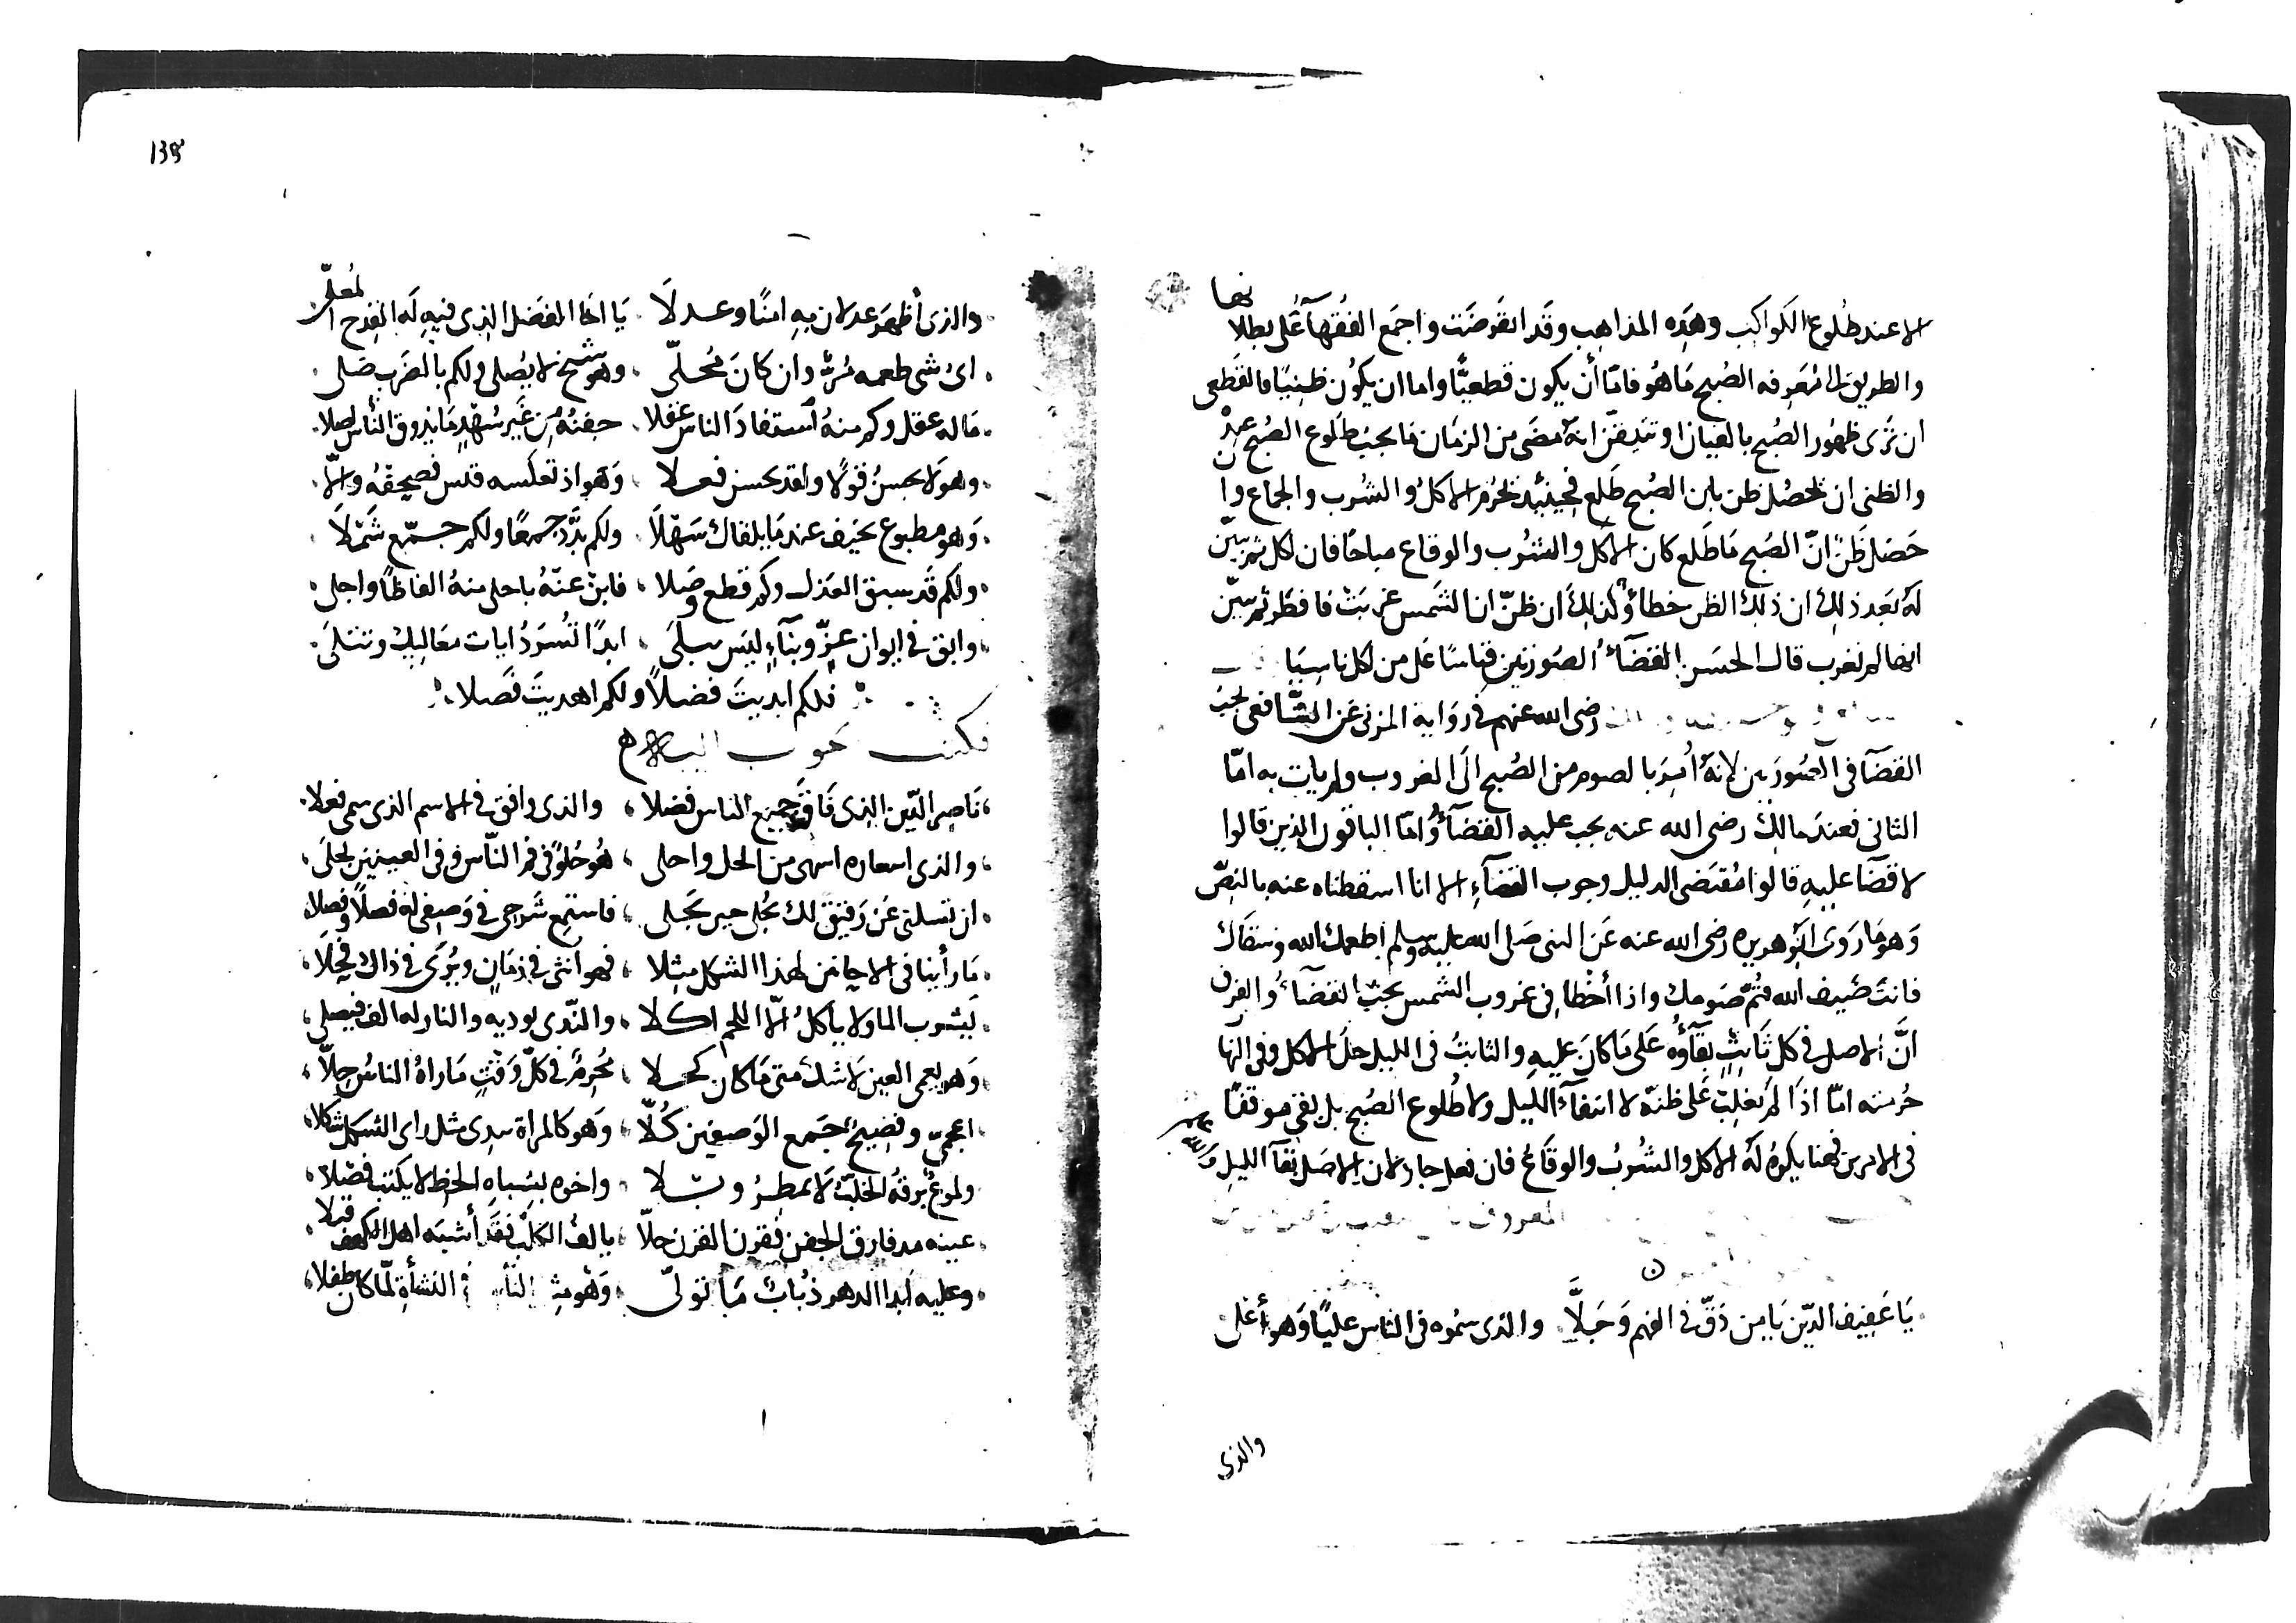 الا عند طلوع الكواكب وهذه المذاهب وقد انقرضت واجمع الفقهآ على بطلانها
والطريق الى معرفه الصبح ما هو فامّا أن يكون قطعيًّا واما ان يكون ظنيًا فالقطعى
ان ترى ظهور الصبح بالعيان او تتيقن انه مضى من الزمان ما يجب طلوع الصبح عنده
والظنى ان يحصل ظن بان الصبح طلع فحينئذ يحرم الاكل والشرب والجماع وان
حصل ظنّ انّ الصبح ما طلع كان الاكل والشرب والوقاع مباحًا فان اكل ثم تبيّن
له بعد ذلك ان ذلك الظن خطأ وكذلك ان ظنّ ان الشمس غربت فافطر ثم تبيّن
انها لم تغرب قال الحسن لا قضآء فى الصورتين قياسًا على من اكل ناسيا
رضى الله عنهم فى رواية المزنى عن الشّافعى يجب
القضآ فى الصورتين لانه أُمِرَ بالصوم من الصبح الى الغروب ولم يات به امّا
الثانى فعند مالك رضى الله عنه يجب عليه القضآء وامّا الباقون الذين قالوا
لا قضآ عليه قالوا مقتضى الدليل وجوب القضآء الا انا اسقطناه عنه بالنصّ
وهو ما روى ابو هريره رضى الله عنه عن النبى صلى الله عليه وسلم اطعمك الله وسقاك
فانت ضيف الله فتمّ صومك واذا أخطا فى غروب الشمس يجب القضآء والفرق
انَّ الاصل فى كل ثابت بقآؤه على ما كان عليه والثابت فى الليل حل الاكل وفى النها
حرمته امّا اذا لم يغلب على ظنه لا انتفآء الليل ولا طلوع الصبح بل بقى موقفًا
فى الامرين فهنا يكره له الاكل والشرب والوقاع فان فعل جاز لان الاصل بقآ الليل
المعروف
يَا عَفيف الدّين يَا من دَقّ فى الفهم وَجَلَّا والذى سمُوه فى الناس عليًا وَهو أعلى
والذى
135
والذى أظهر عدلان به امنًا وعدلَا يَا اخا الفضل الذى فيه لَه القِدح المُعلّى
اىّ شى طعمه مُرّ وان كانَ مُحلّى وهو شيخ لا يُصلى ولكم بالضرب صلى
ماله عقل وكم منهُ استفادَ الناس عقلا جفنهُ من غير سُهْدٍ ما يذوق النأس اصلا
وهو لا يحسنُ قولًا ولقد يحسن فعلا وَهو اذ تعكسه قلس فصحيفه والّا
وَهو مطبوع يخيف عند ما يلقاك سَهْلَا ولكم بَدَّدَ جمعًا ولكم جمّع شَمْلَا
ولكم قد سبق العذل وكم قطع وصلا فابن عنهُ باحلى منهُ الفاظًا واجلى
وابق فى ايوان عزّ وبنآءٍ ليس يبلَى ابدًا تُسرَدُ ايات معاليك وتتلَى
فلكم ابديتَ فضلاً ولكم اهديتَ فَصلا
فكتب
نَاصر الدّين الذى فَاقَ جميع الناس فضلا والذى وافق فى الاسم الذى سمى فعلا
والذى اسعاره اسهى من الحل واحلى هُو حُلوٌ فى فم النّاس وفى العينين يحلَى
ان تسلنى عَن رَفيق لك يُجلى حين يَجلى فاستمع شرحى فى وَصفى له فصلاً وفصلا
مَا رأينا فى الاحانين لهذا الشكل مِثلا فهو انثى فى زمَانٍ ويُرَى فى ذاك فحلا
يَشرب الما ولا ياكلُ الّا اللحم اكلا والنّدى يوديه والنار له الف فيصلى
وَهو يعمى العين لا شك متى مَا كان كحلا مُحرِمٌ فى كلّ وَقْتٍ مَا راهُ الناسُ حِلّا
اعجمىّ وفصيحٌ جَمع الوَصفين كُلّا وَهو كالمراة يبدى مثل راى الشكل شكلا
ولموعٌ برقهُ الخلّب لا يمطِرُ وبلا واخوه يشباه الخط لا يكتب فصلا
عينه مد فارق الجفن فقرن القرن حلّا يالف الكلب فقد أشبَه اهل الكهف قبلا
وعليه ابدا الدهر ذُبابٌ مَا تولّى وَهْو فى النشأةِ لمّا كان طفلا